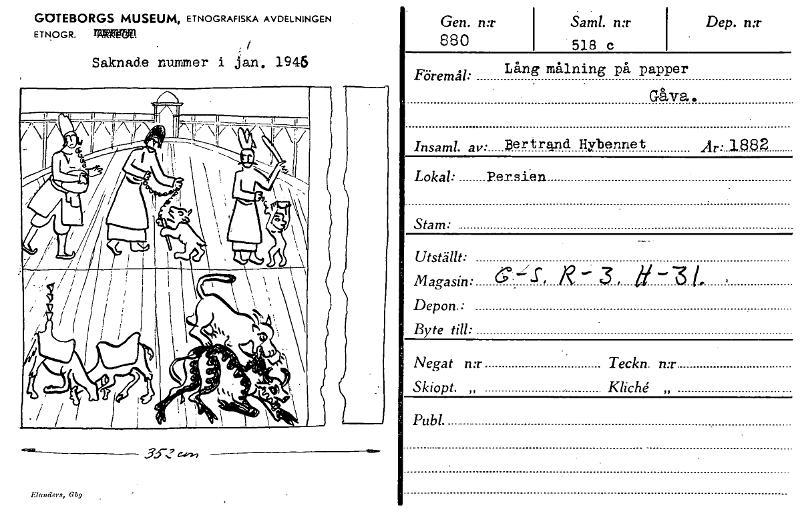 GÖTEBORGS MUSEUM, ETNOGRAFISKA AVDELNINGEN
ETNOGR.
Saknade nummer i jan. 1946
352 cm
Elanders, Gbg
Gen. n:r Saml. n:r Dep. n:r
880 518 c
Föremål: Lång målning på papper
Gåva.
Insaml. av: Bertrand Hybennet År: 1882
Lokal: Persien
Stam:
Utställt:
Magasin: G-S. R-3. H-31.
Depon.:
Byte till:
Negat n:r Teckn. n:r
Skiopt. „ Kliché „
Publ.